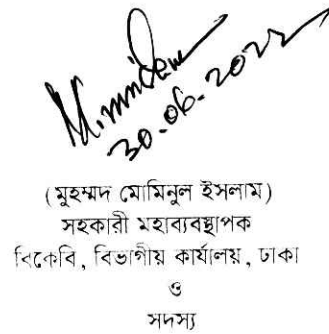 30.06.2022
(মুহম্মদ মোমিনুল ইসলাম)
সহকারী মহাব্যবস্থাপক
বিকেবি, বিভাগীয় কার্যালয়, ঢাকা
ও
সদস্য